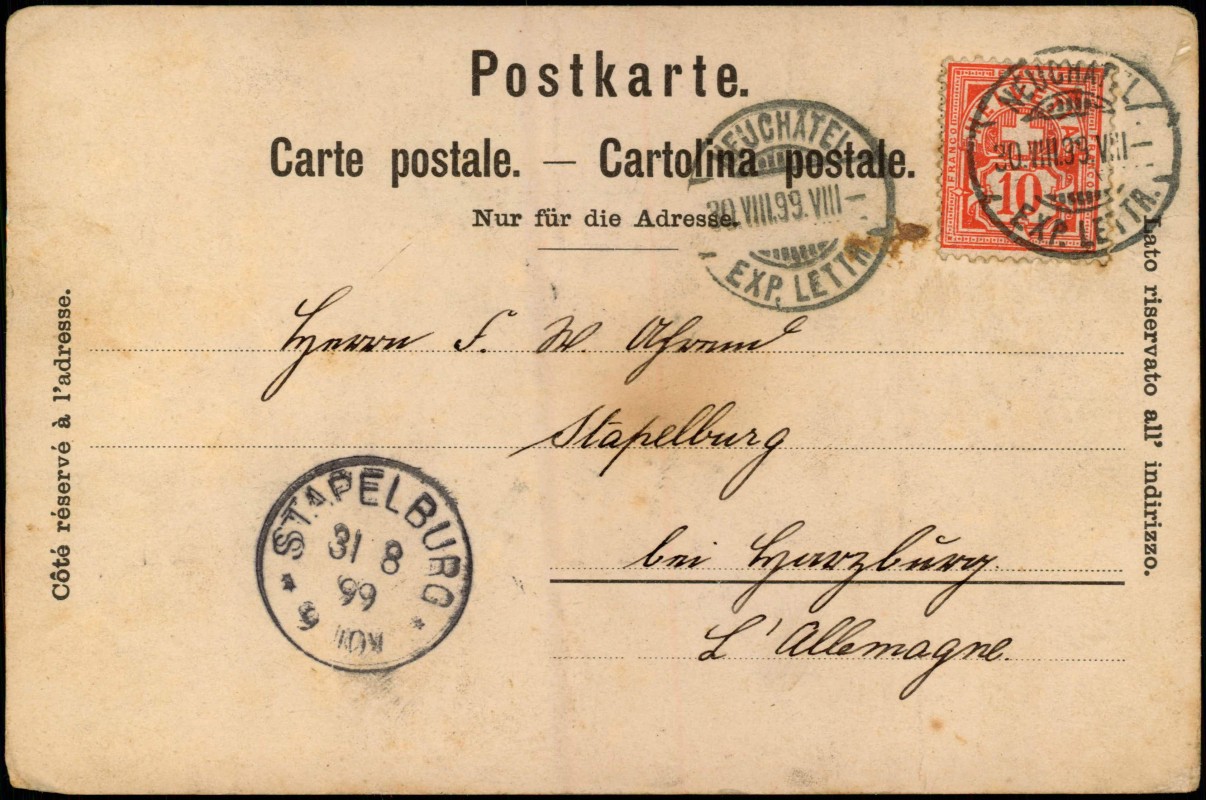 Postkarte.
Carte postale. — Cartolina postale.
Nur für die Adresse.
NEUCHÂTEL
30.VIII.99.VIII–
EXP. LETTR.
NEUCHÂTEL
30.VIII.99.VIII
EXP. LETTR.
FRANCO
10
Côté réservé à l'adresse.
Lato riservato all' indirizzo.
Herrn F. W. Ahrend
Stapelburg
bei Harzburg.
L'Allemagne.
* STAPELBURG *
31 8
99